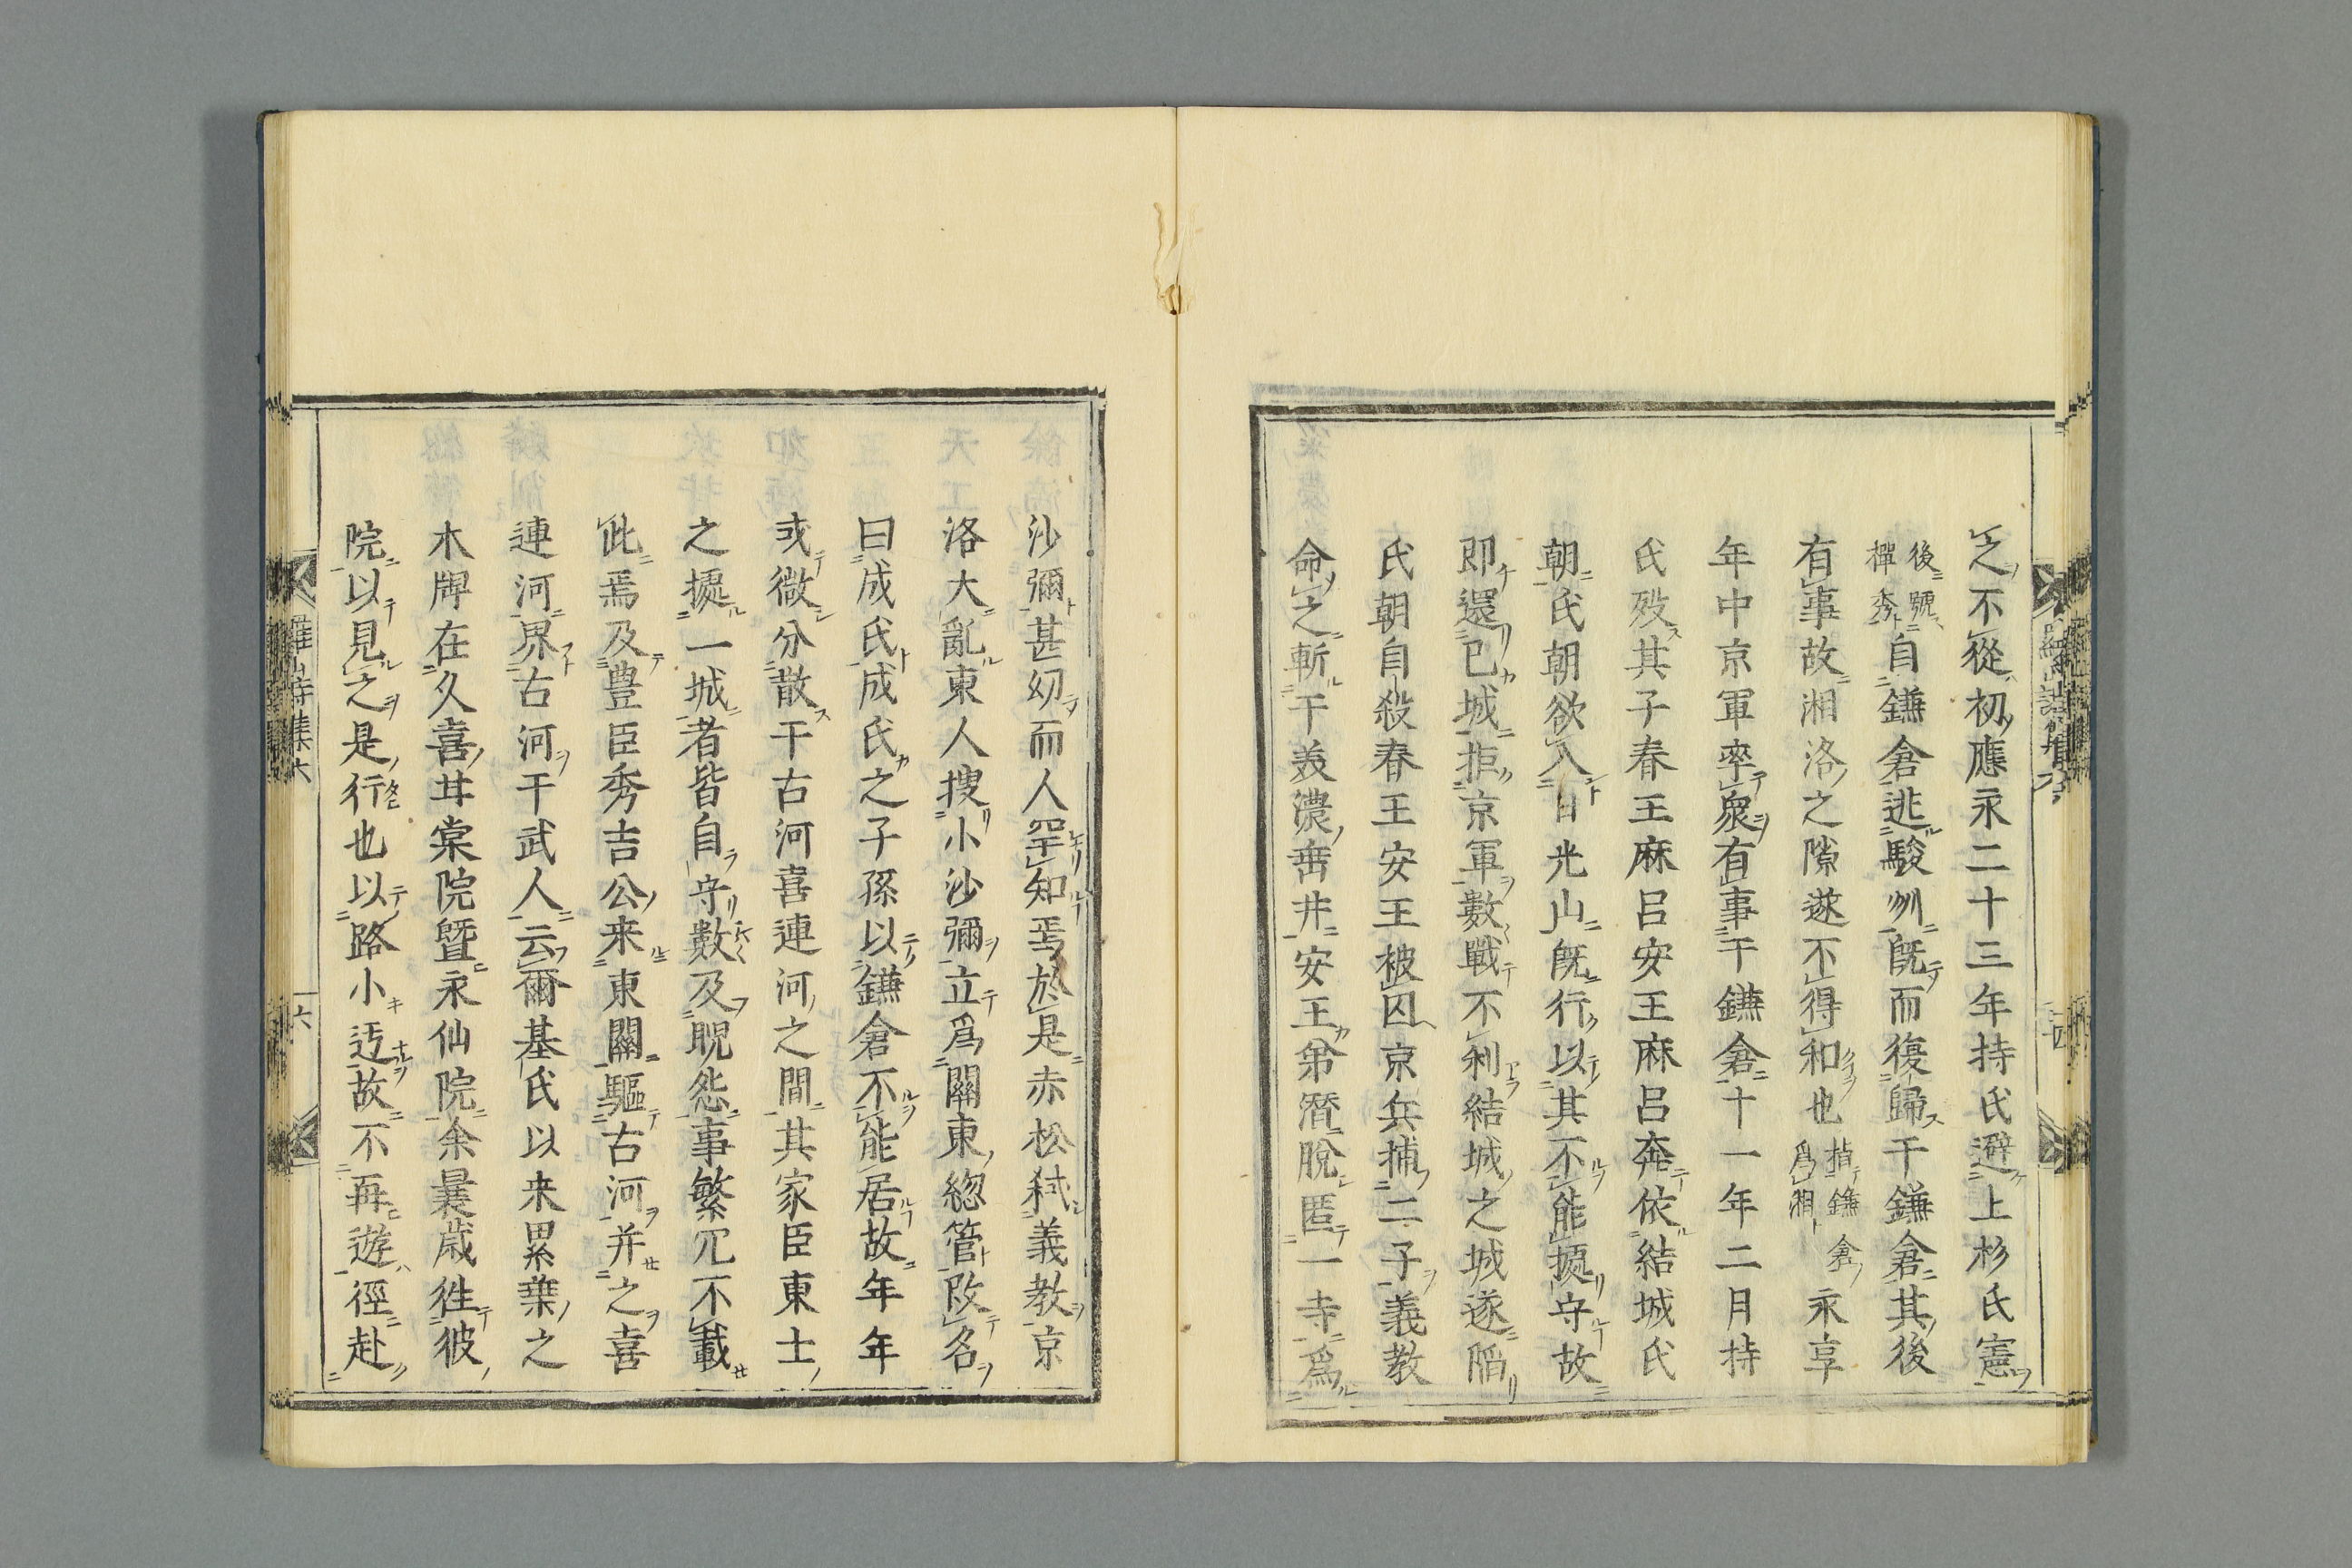 之不從初應永二十三年持氏避上杉氏憲
後號禪秀自鎌倉逃駿州既而復歸于鎌倉其後
有事故湘洛之隙遂不得和也指鎌倉爲湘永享
年中京軍率衆有事于鎌倉十一年二月持
氏歿其子春王麻呂安王麻呂奔依結城氏
朝氏朝欲入日光山既行以其不能據守故
即還已城拒京軍數戰不利結城之城遂陷
氏朝自殺春王安王被囚京兵捕二子義教
命之斬于義濃垂井安王弟潛脫匿一寺爲
沙彌甚幼而人罕知焉於是赤松弒義教京
洛大亂東人搜小沙彌立爲關東總管改名
曰成氏成氏之子孫以鎌倉不能居故年年
或微分散于古河喜連河之間其家臣東士
之據一城者皆自守數及睨怨事繁冗不載
此焉及豊臣秀吉公来東關驅古河并之喜
連河界古河于武人云爾基氏以来累葉之
木牌在久喜甘棠院曁永仙院余曩歳徃彼
院以見之是行也以路小迂故不再遊徑赴
羅山詩集六
六